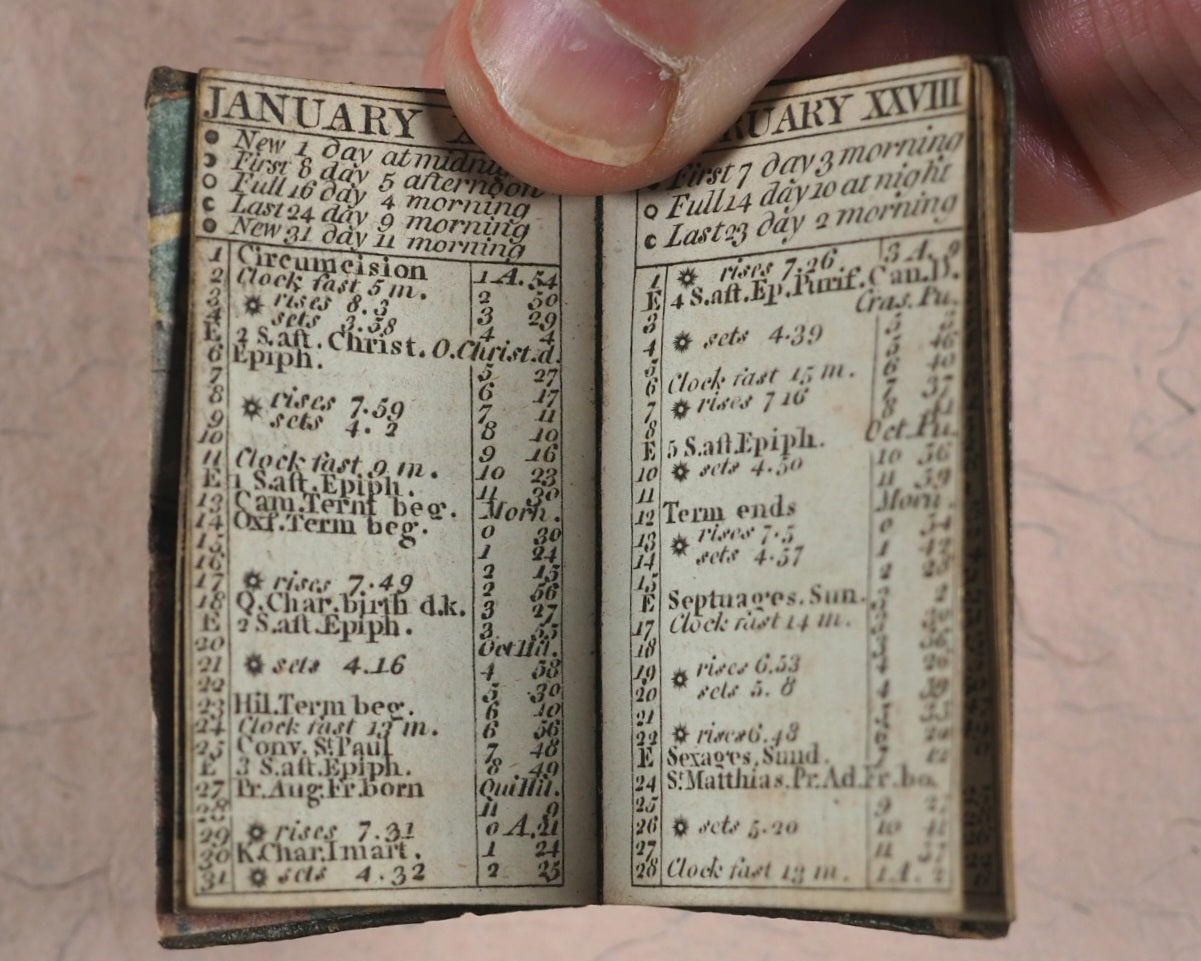 JANUARY
New 1 day at midni
First 8 day 5 afternoon
Full 16 day 4 morning
Last 24 day 9 morning
New 31 day 11 morning
1 Circumcision 1 A. 54
2 Clock fast 5 m. 2 50
3 rises 8.3 3 29
4 sets 3.58 4 4
E 2 S. aft. Christ. O. Christ. d.
6 Epiph. 5 27
7 6 17
8 rises 7.59 7 11
9 sets 4.2 8 10
10 9 16
11 Clock fast 9 m. 10 23
E 1 S. aft. Epiph. 11 30
13 Cam. Term beg. Morn.
14 Oxf. Term beg. 0 30
15 1 24
16 2 15
17 rises 7.49 2 56
18 Q. Char. birth d. k. 3 27
E 2 S. aft. Epiph. 3 55
20 Oct Hil.
21 sets 4.16 4 58
22 5 30
23 Hil. Term beg. 6 10
24 Clock fast 13 m. 6 56
25 Conv. St. Paul 7 48
E 3 S. aft. Epiph. 8 49
27 Pr. Aug. Fr. born Qui Hil.
28 11 9
29 rises 7.31 0 A. 21
30 K. Char. I mart. 1 24
31 sets 4.32 2 25
RUARY XXVIII
First 7 day 3 morning
Full 14 day 10 at night
Last 23 day 2 morning
1 rises 7.26 3 A. 9
E 4 S. aft. Ep. Purif. Can. D.
3 Cras. Pu.
4 sets 4.39 5 46
5 6 40
6 Clock fast 15 m. 7 37
7 rises 7 16 8
8 Oct. Pu.
E 5 S. aft. Epiph. 10 56
10 sets 4.50 11 59
11 Morn.
12 Term ends 0 54
13 rises 7.5 1
14 sets 4.57 2
15
E Septuages. Sun. 2
17 Clock fast 14 m.
18
19 rises 6.53 4 26
20 sets 5.8 4 59
21
22 rises 6.48
E Sexages, Sund. 7
24 St. Matthias. Pr. Ad. Fr. bo.
25 9
26 sets 5.20 10 41
27 11
28 Clock fast 13 m. 1 A. 2